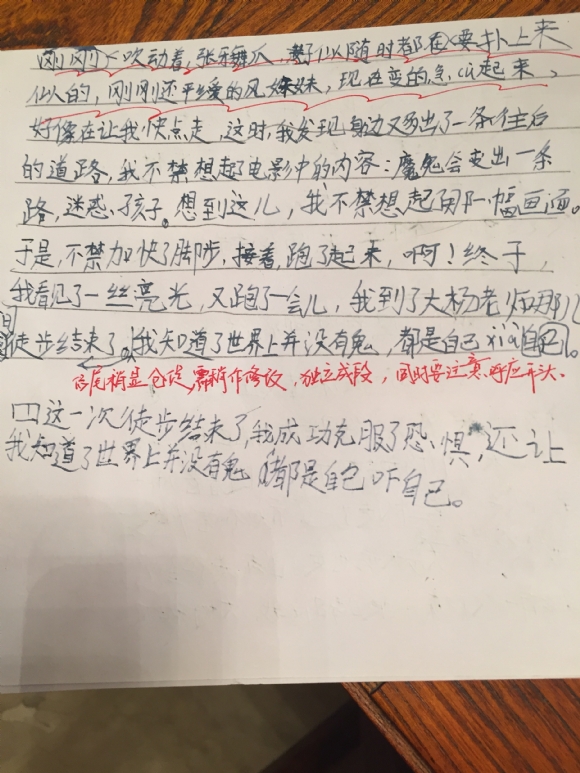 刚刚吹动着,张牙舞爪,好似随时都在要扑上来
似的,刚刚还平缓的风妹妹,现在变的急cù起来、
好像在让我快点走,这时,我发现身边又多出了一条往后
的道路,我不禁想起了电影中的内容:魔鬼会变出一条
路,迷惑孩子。想到这儿,我不禁想起了那一幅画面。
于是,不禁加快了脚步,接着,跑了起来,啊!终于,
我看见了一丝亮光,又跑了一会儿,我到了大杨老师那儿
徒步结束了。我知道了世界上并没有鬼,都是自己xià自己。
结尾稍显仓促,需稍作修改,独立成段,同时要注意呼应开头。
这一次徒步结束了,我成功克服了恐惧,还让
我知道了世界上并没有鬼都是自己吓自己。